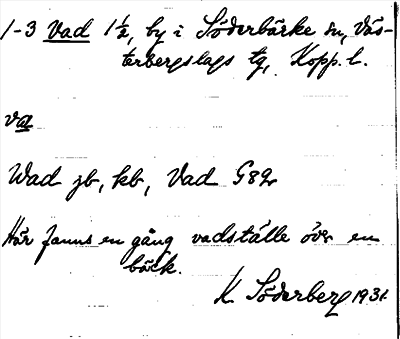 1-3 Vad 1½, by i Söderbärke sn, Väs-
terbergslags tg, Kopp. l.
va
Wad jb, kb, Vad GSL
Här fanns en gång vadställe över en
bäck.
K Söderberg 1931.